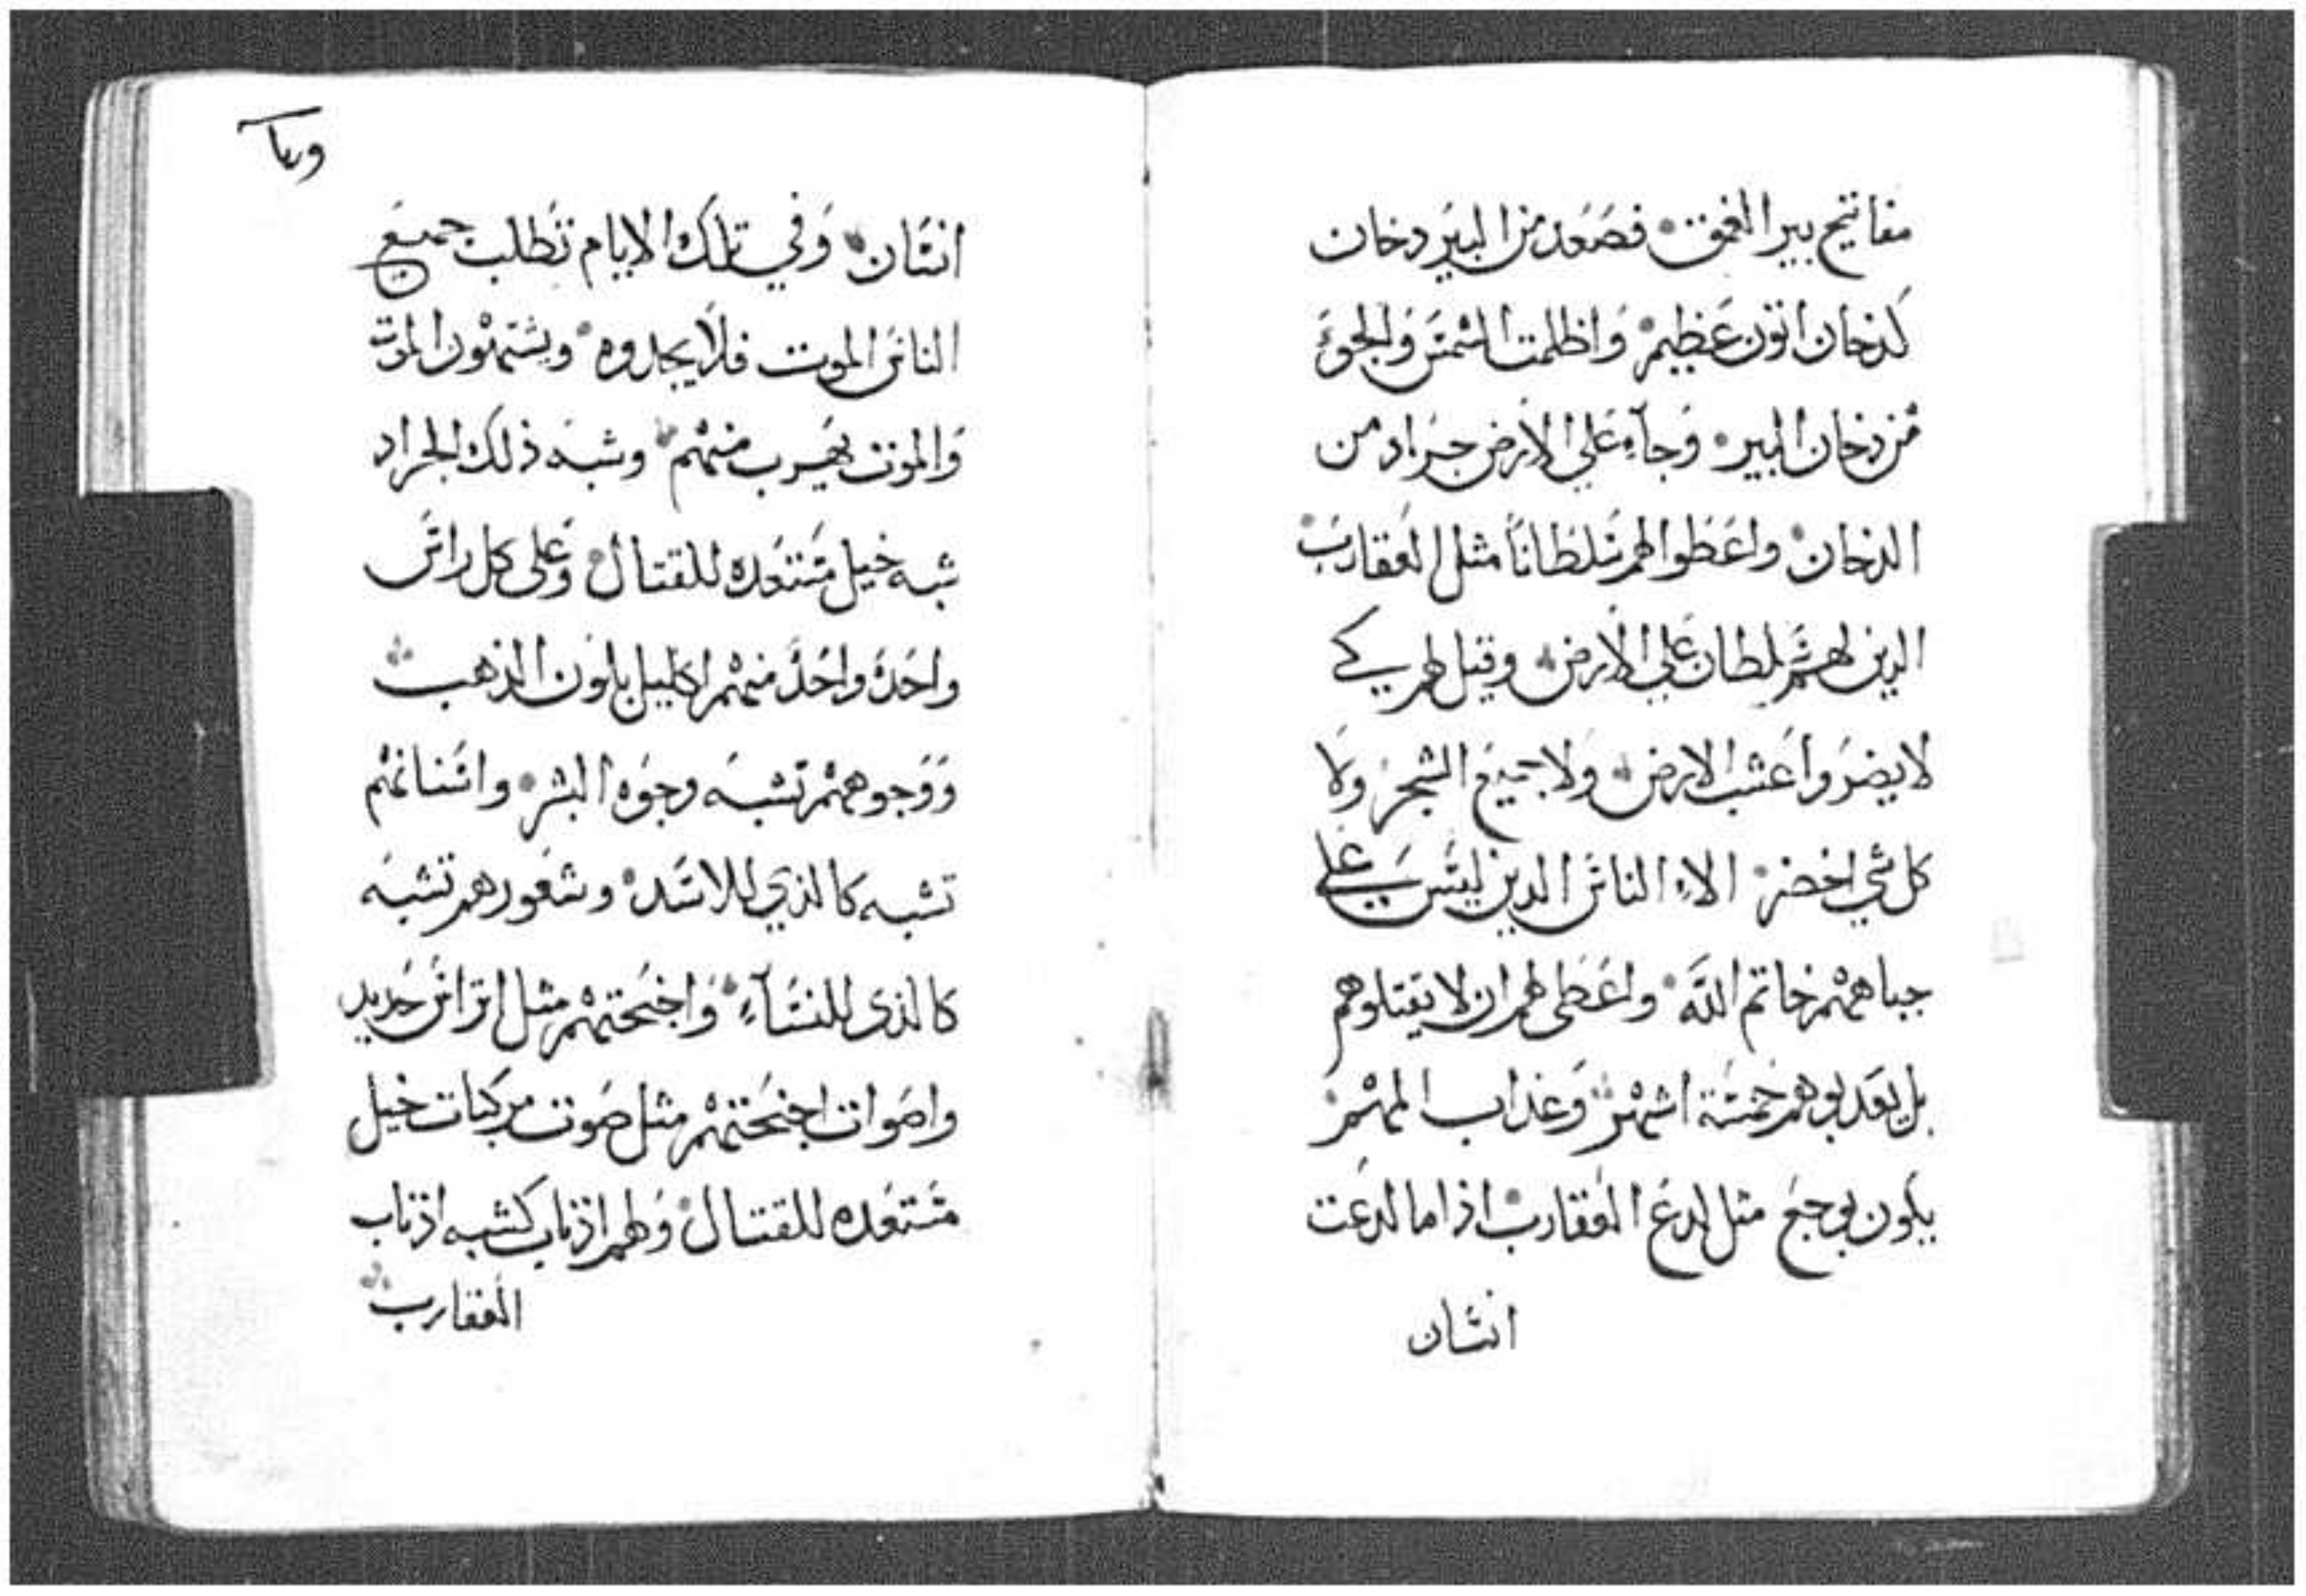 مفاتيح بير العمق فصعد من البير دخان
كدخان اتون عظيم واظلمت الشمس والجو
من دخان البير وجاء علي الارض جراد من
الدخان واعطوا لهم سلطاناً مثل العقارب
الدين لهم سلطان علي الارض وقيل لهم كي
لا يضروا عشب الارض ولا جميع الشجر ولا
كل شي اخضر الاء الناس الدين ليس علي
جباههم خاتم الله واعطى لهم ان لا يقتلوهم
بل يعدبوهم خمسة اشهر وعذاب المهم
يكون بوجع مثل لدغ العقارب اذا ما لدغت
انسان
انسان وفي تلك الايام تطلب جميع
الناس الموت فلا يجدوه ويشتهون الموت
والموت يهرب منهم وشبه ذلك الجراد
شبه خيل مستعده للقتال وعلى كل راس
واحد واحد منهم اكليل بلون الذهب
ووجوههم تشبه وجوه البشر واسنانهم
تشبه كالذي للاسد وشعورهم تشبه
كالذى للنساء واجنحتهم مثل اتراس حديد
واصوات اجنحتهم مثل صوت مركبات خيل
مستعده للقتال ولهم اذناب كشبه اذناب
العقارب